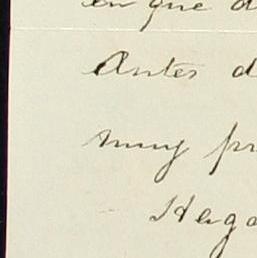 en que d
Antes d
muy pr
Haga